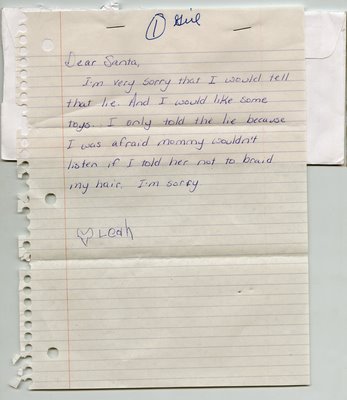 1 Girl
Dear Santa,
I'm very sorry that I would tell
that lie. And I would like some
toys. I only told the lie because
I was afraid mommy wouldn't
listen if I told her not to braid
my hair. I'm sorry.
Leah